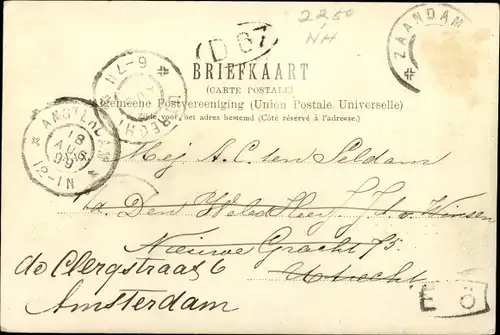 2250
NH
D 67
ZAANDAM
6-7N
BRIEFKAART
(CARTE POSTALE)
Algemeene Postvereeniging (Union Postale Universelle)
Zijde voor het adres bestemd (Côté réservé à l'adresse.)
AMSTERDAM
18
AUG
12-IN
Mej A. C. ten Seldam
Den WelEd Heer J. J. v.
Nieuwe Gracht 75
Utrecht
de Clergstraat 6
Amsterdam
E